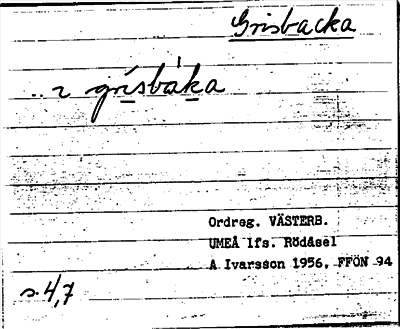 Grisbacka
.. ɿ grísbáka
Ordreg. VÄSTERB.
UMEÅ lfs. Rödåsel
A Ivarsson 1956. FFÖN 94
s. 4,7